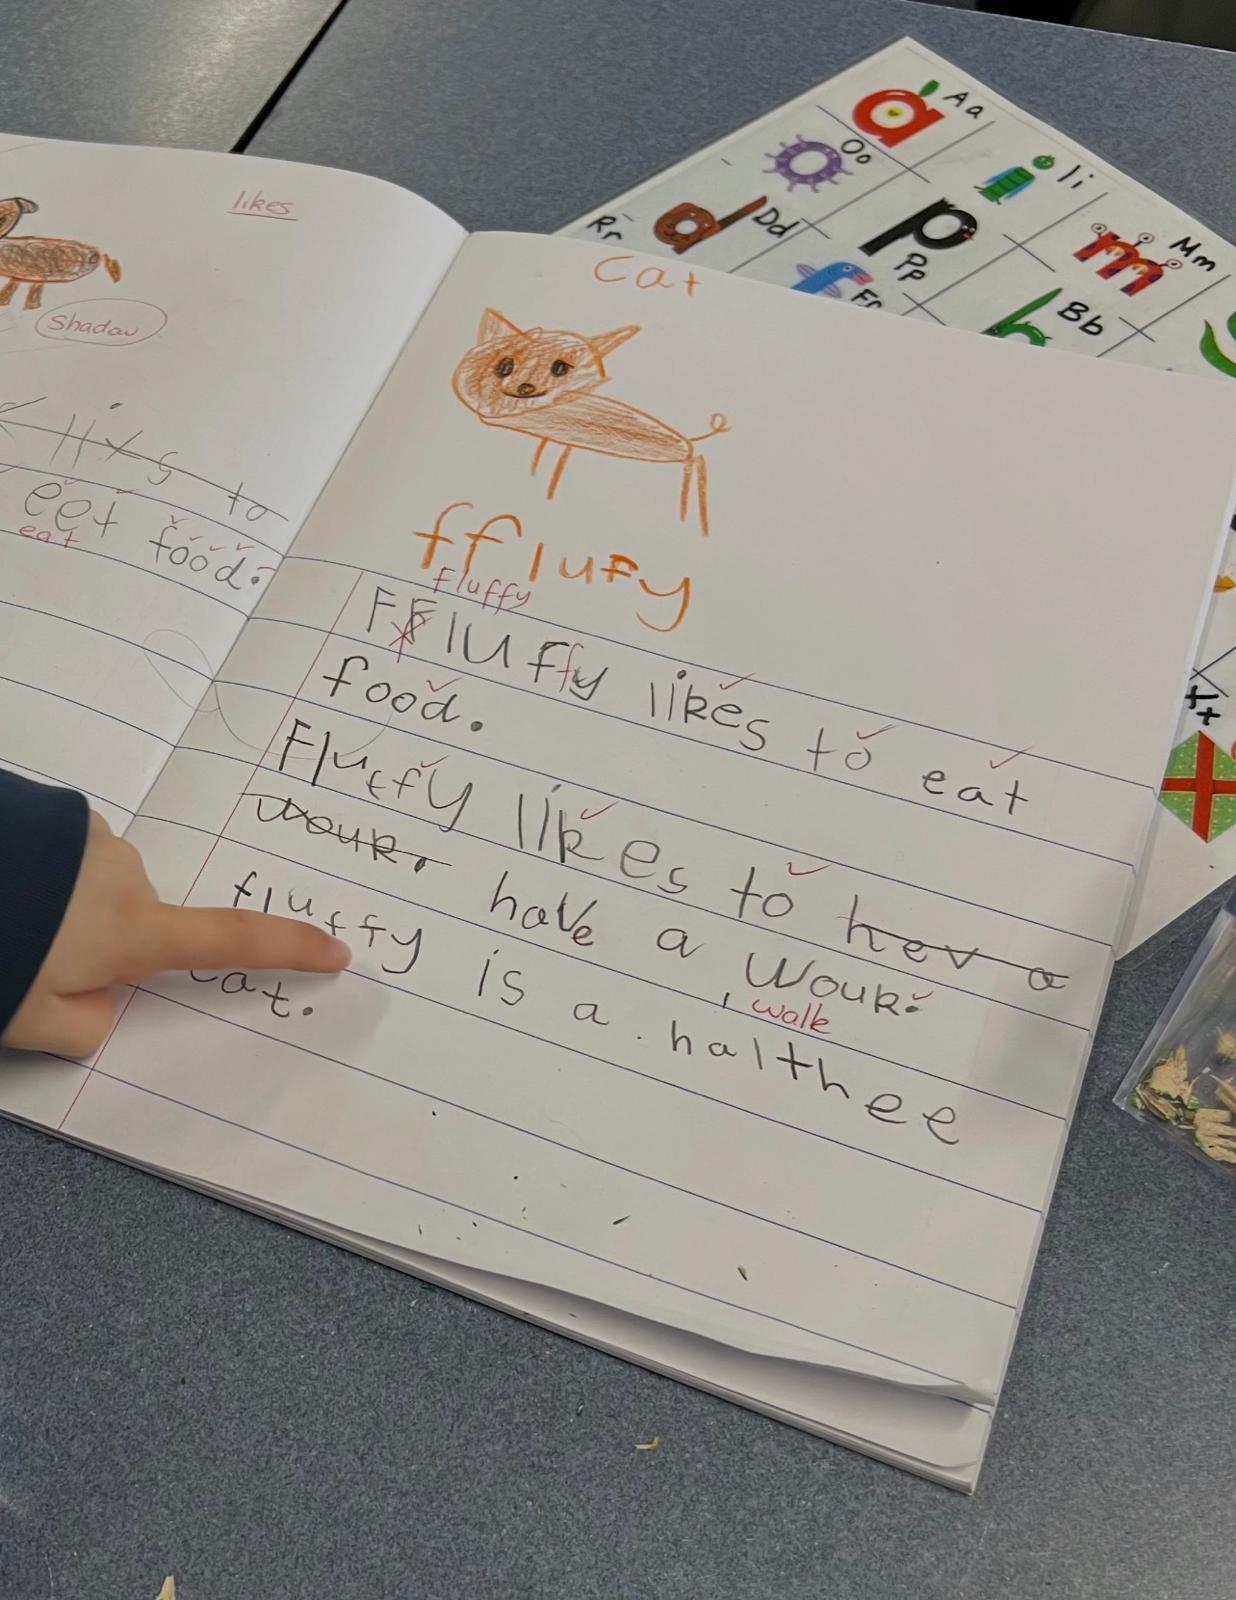 likes
Shadow
to
eet food.
eat
cat
fflufy
Fluffy
FFluffy likes to eat
food.
Fluffy likes to hev a
wouk. have a wouk.
walk
fluffy is a halthee
cat.
Aa
Ii
Mm
Oo
Pp
Bb
Dd
Rr